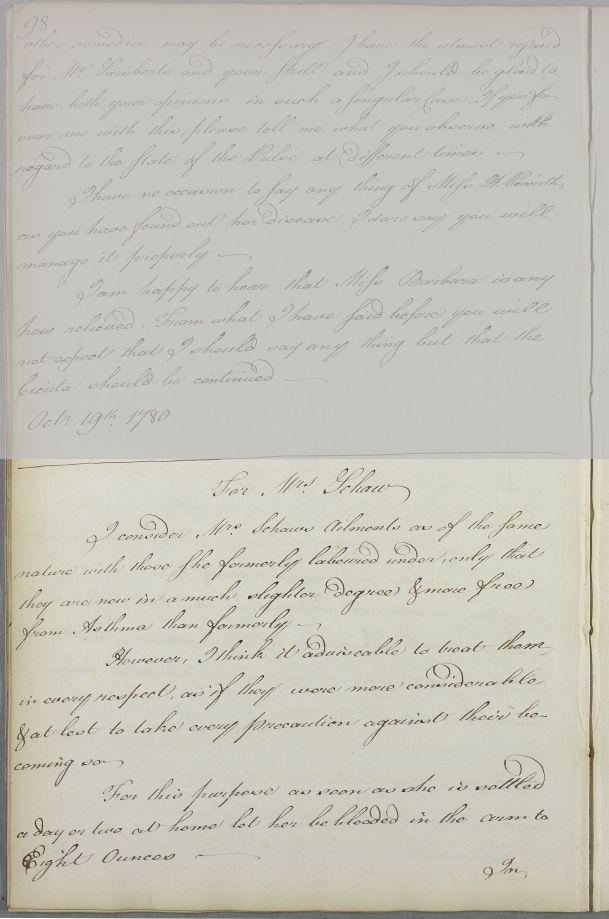 98
other remedies may be necessary. I have the utmost regard
for Mr. Lamberts and your Skill and I should be glad to
have both your opinions in such a singular Case. If you fa-
vour me with this, please tell me what you observe with
regard to the State of the Pulse at different times
I have no occasion to say any thing of Miss H.
as you have found out her Disease, I dare say you will
manage it properly
I am happy to hear that Miss Barbara is any
how relieved. From what I have said before you will
not expect that I should say any thing but that the
Cicuta should be continued
Octr. 19th. 1780
For Mrs Schaw
I consider Mrs. Schaws Ailments as of the same
nature with those she formerly laboured under, only that
they are now in a much slighter degree & more free
from Asthma than formerly
However, I think it adviseable to treat them
in every respect, as if they were more considerable
& at lest to take every precaution against their be-
coming so
For this purpose as soon as she is settled
a day or two at home let her be blooded in the arm to
Eight Ounces
In